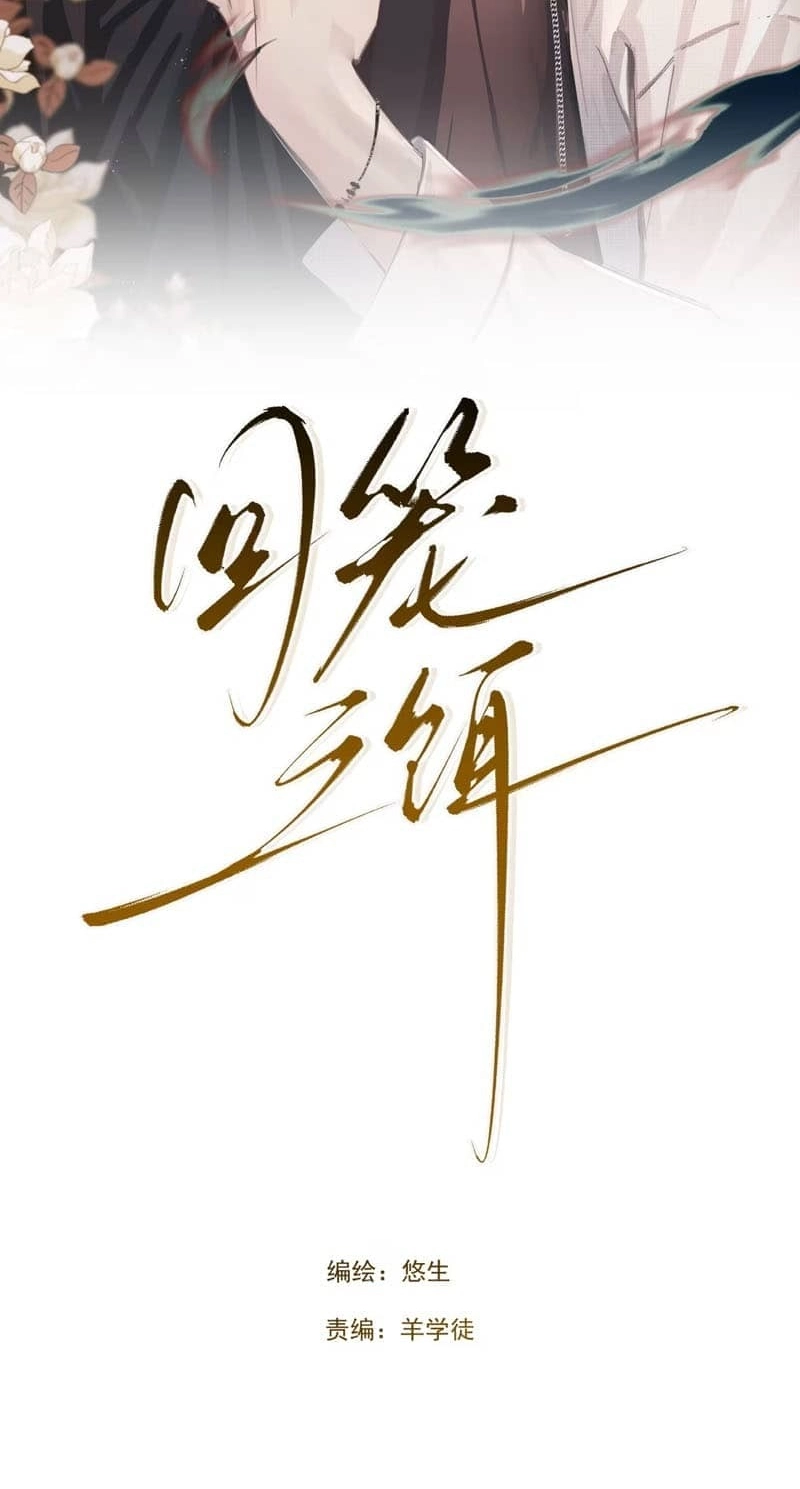 回笼
之饵
编绘：悠生
责编：羊学徒